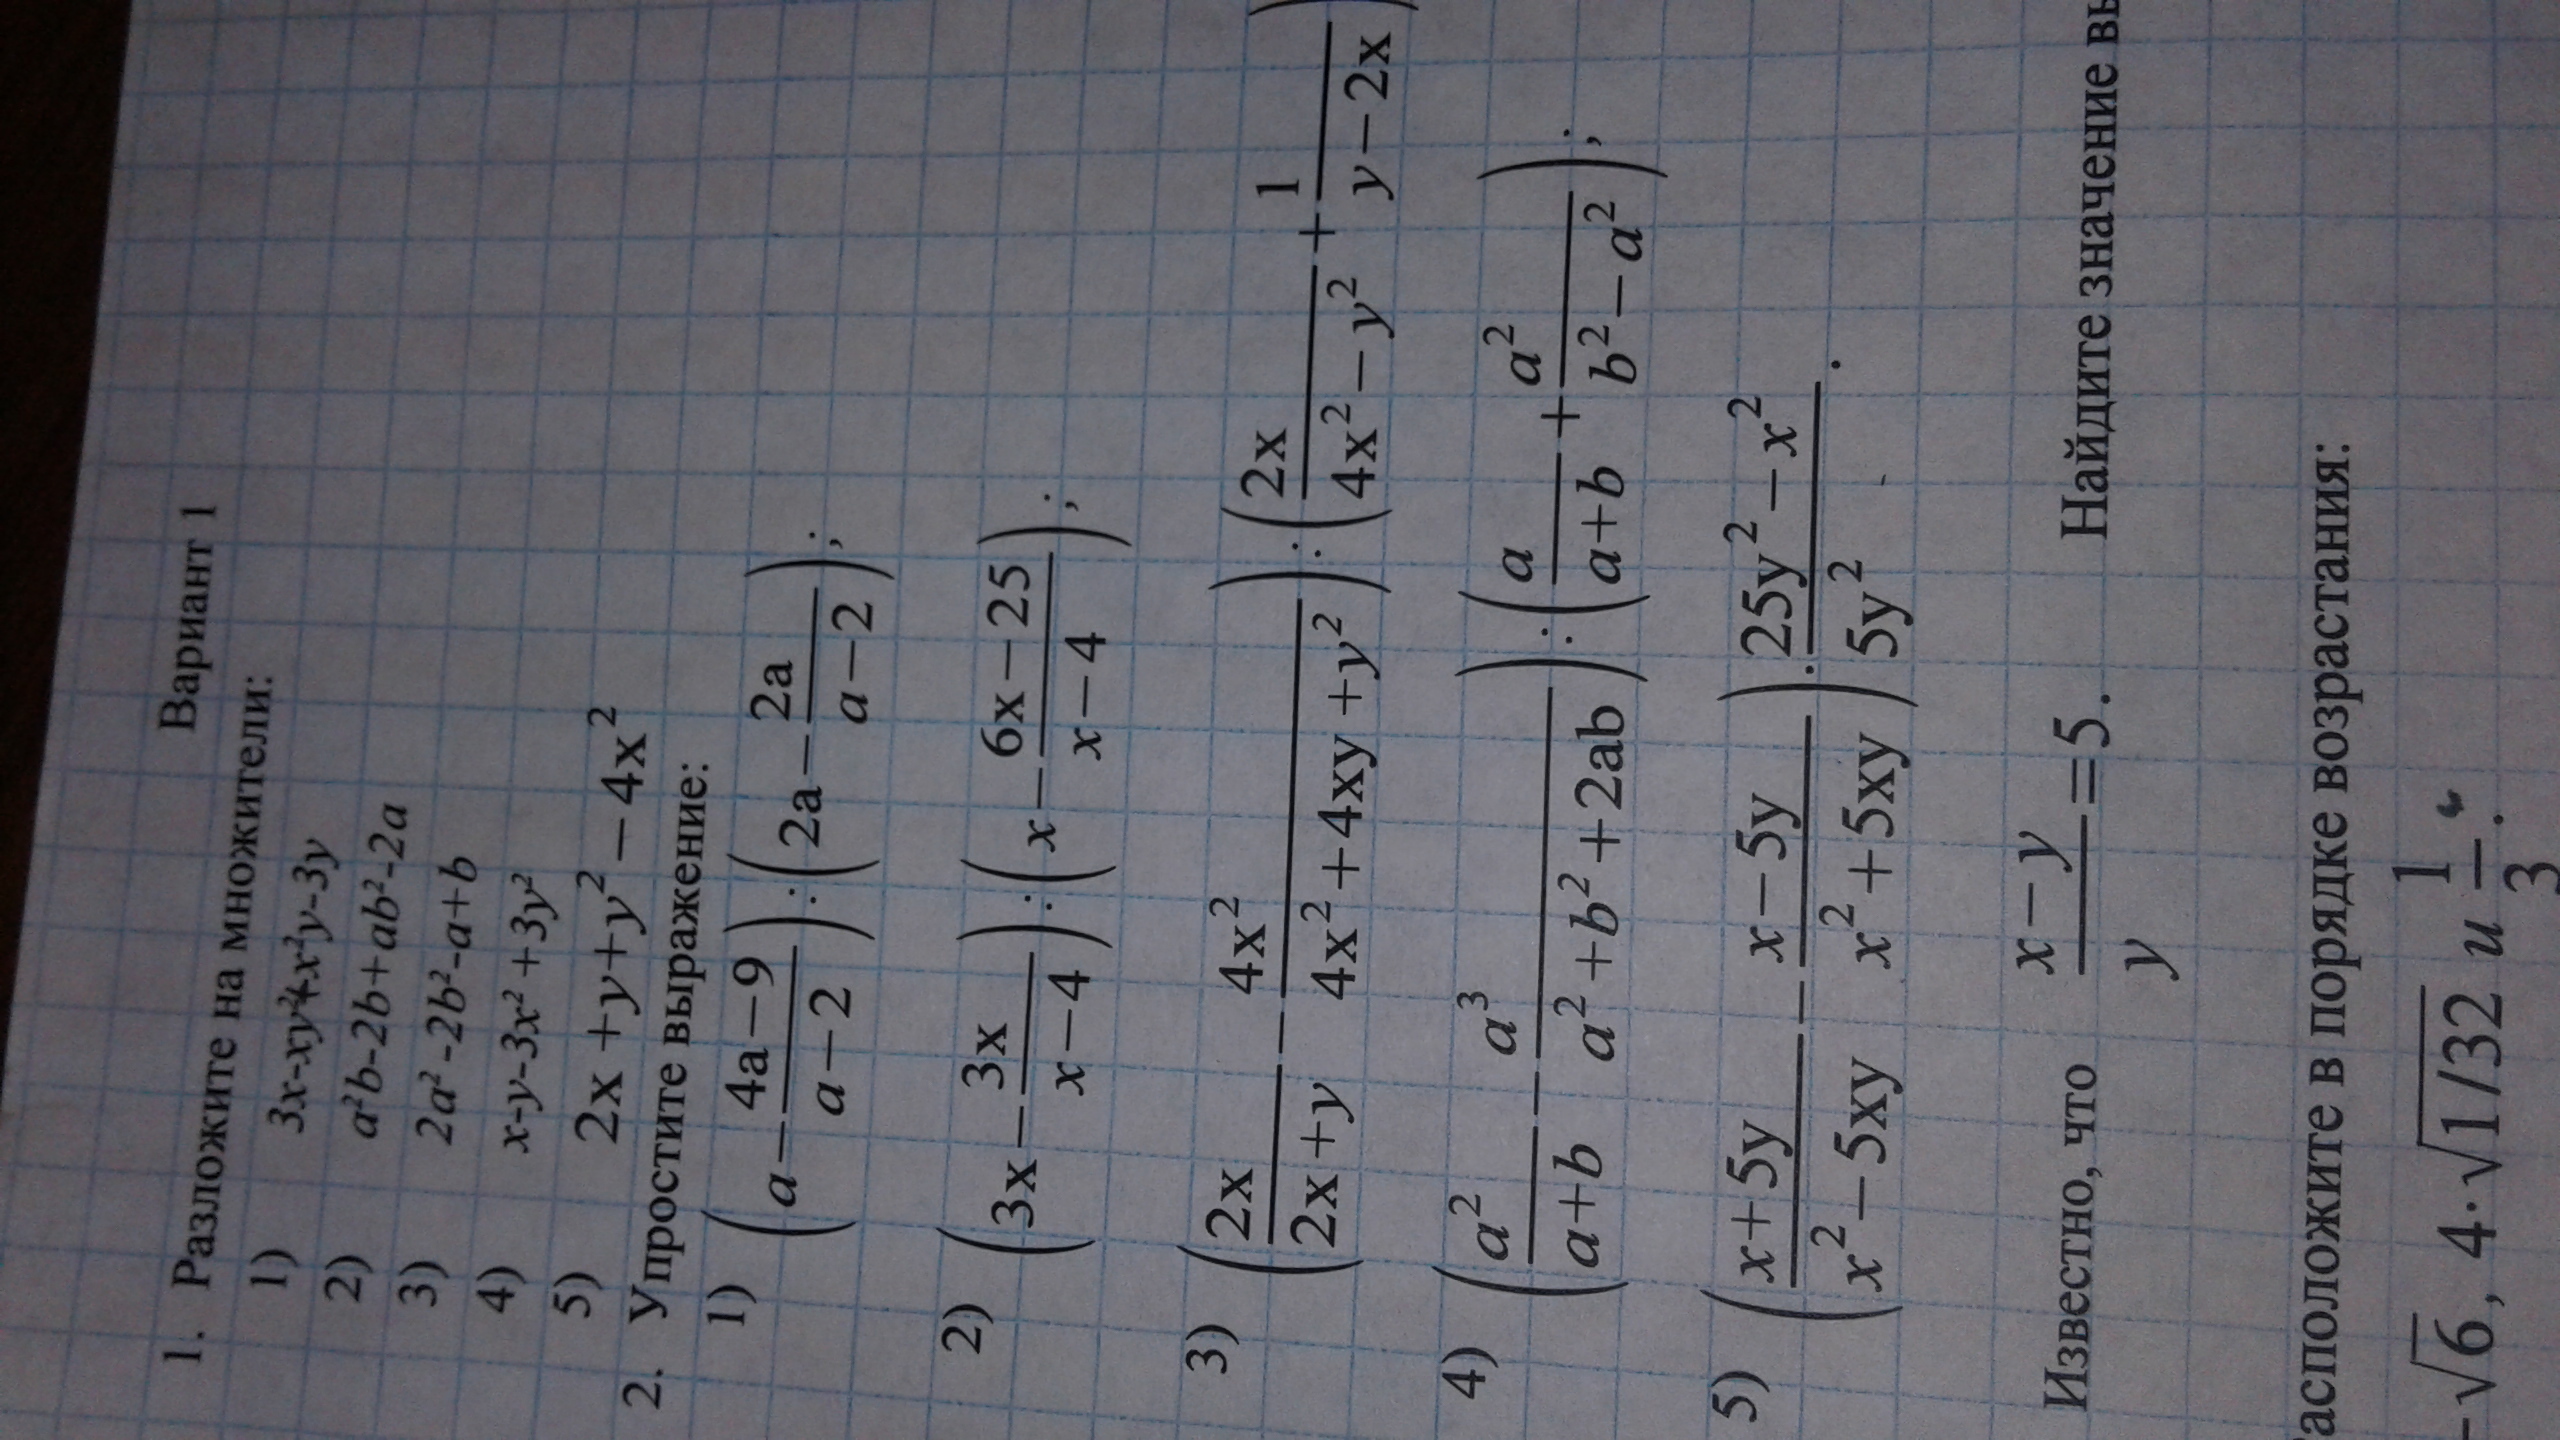 Вариант 1
1. Разложите на множители:
1) 3x-xy²+x²y-3y
2) a²b-2b+ab²-2a
3) 2a²-2b²-a+b
4) x-y-3x²+3y²
5) 2x+y+y²−4x²
2. Упростите выражение:
1) (a − (4a−9)/(a−2)) : (2a − 2a/(a−2));
2) (3x − 3x/(x−4)) : (x − (6x−25)/(x−4));
3) (2x/(2x+y) − 4x²/(4x²+4xy+y²)) : (2x/(4x²−y²) + 1/(y−2x))
4) (a²/(a+b) − a³/(a²+b²+2ab)) : (a/(a+b) + a²/(b²−a²));
5) ((x+5y)/(x²−5xy) − (x−5y)/(x²+5xy)) · (25y²−x²)/(5y²).
Известно, что (x−y)/y = 5. Найдите значение
в порядке возрастания:
√6, 4·√(1/32) и 1/3.